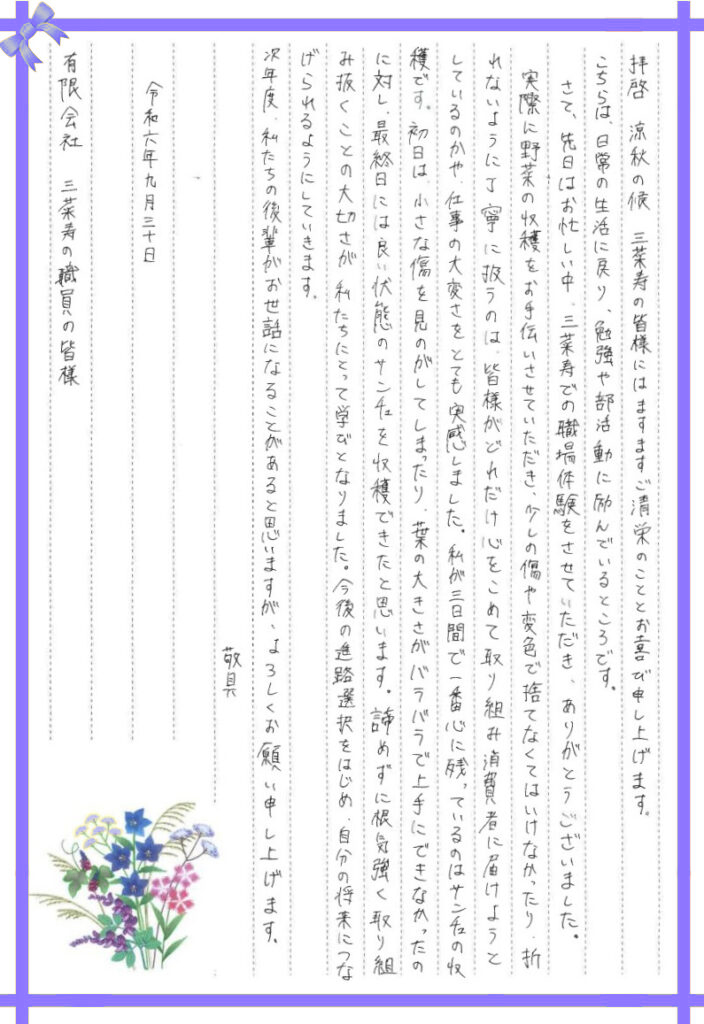 拝啓　涼秋の候　三菜寿の皆様にはますますご清栄のこととお喜び申し上げます。
こちらは、日常の生活に戻り、勉強や部活動に励んでいるところです。
さて、先日はお忙しい中、三菜寿での職場体験をさせていただき、ありがとうございました。
実際に野菜の収穫をお手伝いさせていただき、少しの傷や変色で捨てなくてはいけなかったり、折
れないように丁寧に扱うのは、皆様がどれだけ心をこめて取り組み消費者に届けようと
しているのかや、仕事の大変さをとても実感しました。私が三日間で一番心に残っているのはサンチュの収
穫です。初日は、小さな傷を見のがしてしまったり、葉の大きさがバラバラで上手にできなかったの
に対し、最終日には良い状態のサンチュを収穫できたと思います。諦めずに根気強く取り組
み抜くことの大切さが、私たちにとって学びとなりました。今後の進路選択をはじめ、自分の将来につな
げられるようにしていきます。
次年度、私たちの後輩がお世話になることがあると思いますが、よろしくお願い申し上げます。
敬具
令和六年九月三十日
有限会社　三菜寿の職員の皆様